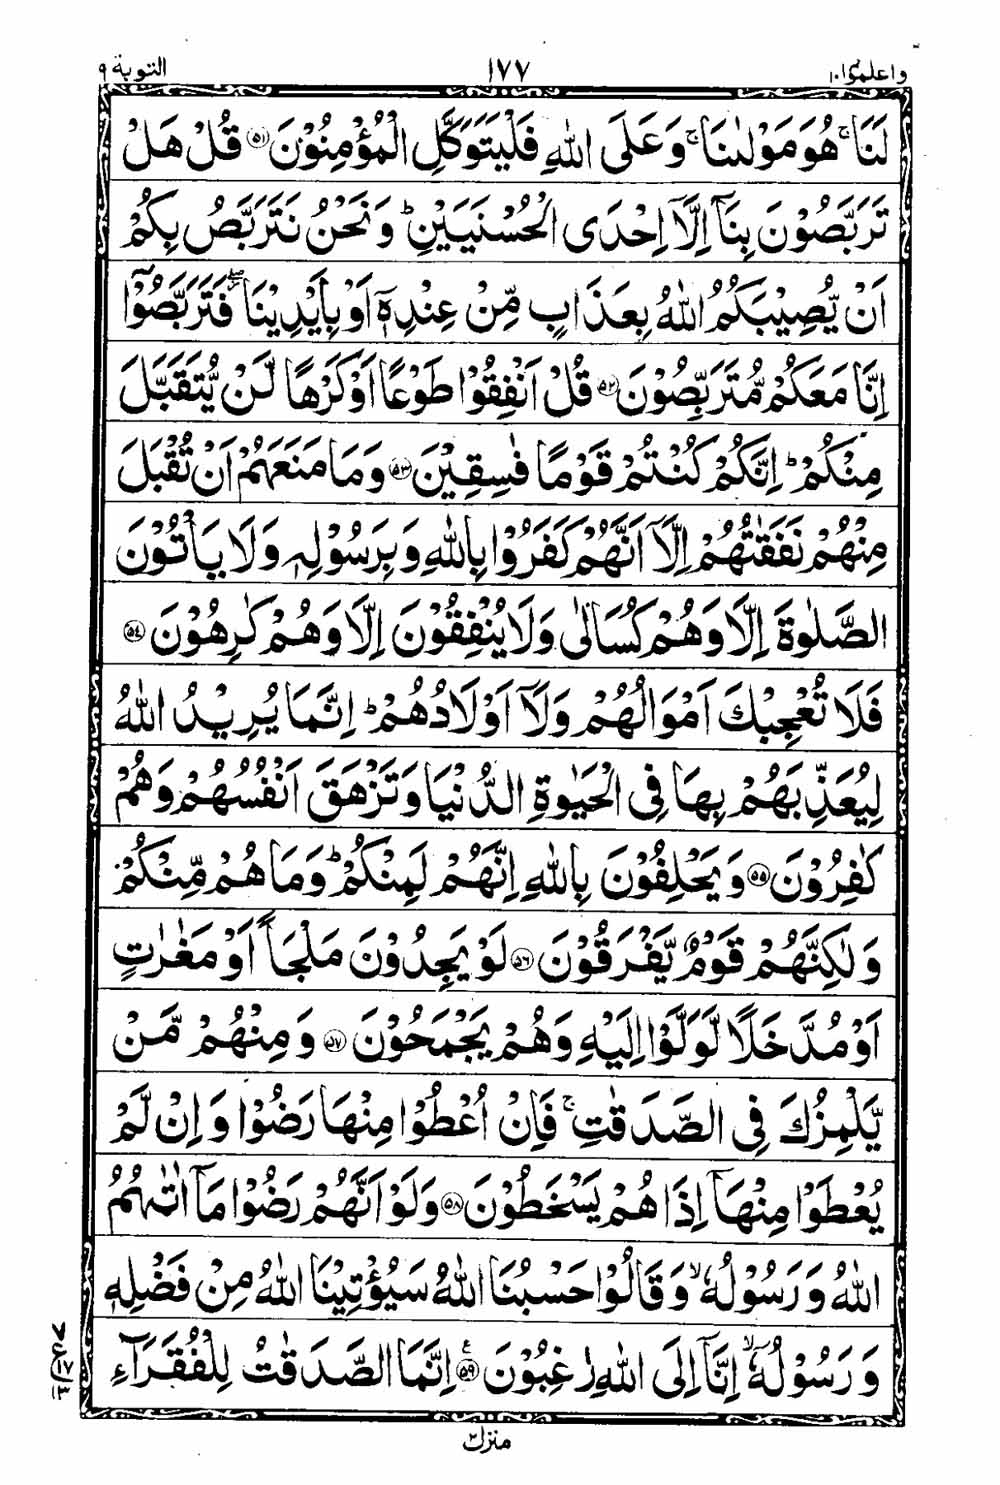 واعلموا ١٠ ١٧٧ التوبة ٩
لَنَا ۚ هُوَ مَوْلٰىنَا ۚ وَ عَلَى اللّٰهِ فَلْيَتَوَكَّلِ الْمُؤْمِنُوْنَ ﴿۵۱﴾ قُلْ هَلْ
تَرَبَّصُوْنَ بِنَاۤ اِلَّاۤ اِحْدَى الْحُسْنَيَيْنِ ؕ وَ نَحْنُ نَتَرَبَّصُ بِكُمْ
اَنْ يُّصِيْبَكُمُ اللّٰهُ بِعَذَابٍ مِّنْ عِنْدِهٖۤ اَوْ بِاَيْدِيْنَا ۖ فَتَرَبَّصُوْۤا
اِنَّا مَعَكُمْ مُّتَرَبِّصُوْنَ ﴿۵۲﴾ قُلْ اَنْفِقُوْا طَوْعًا اَوْ كَرْهًا لَّنْ يُّتَقَبَّلَ
مِنْكُمْ ؕ اِنَّكُمْ كُنْتُمْ قَوْمًا فٰسِقِيْنَ ﴿۵۳﴾ وَ مَا مَنَعَهُمْ اَنْ تُقْبَلَ
مِنْهُمْ نَفَقٰتُهُمْ اِلَّاۤ اَنَّهُمْ كَفَرُوْا بِاللّٰهِ وَ بِرَسُوْلِهٖ وَ لَا يَاْتُوْنَ
الصَّلٰوةَ اِلَّا وَ هُمْ كُسَالٰى وَ لَا يُنْفِقُوْنَ اِلَّا وَ هُمْ كٰرِهُوْنَ ﴿۵٤﴾
فَلَا تُعْجِبْكَ اَمْوَالُهُمْ وَ لَاۤ اَوْلَادُهُمْ ؕ اِنَّمَا يُرِيْدُ اللّٰهُ
لِيُعَذِّبَهُمْ بِهَا فِى الْحَيٰوةِ الدُّنْيَا وَ تَزْهَقَ اَنْفُسُهُمْ وَ هُمْ
كٰفِرُوْنَ ﴿۵۵﴾ وَ يَحْلِفُوْنَ بِاللّٰهِ اِنَّهُمْ لَمِنْكُمْ ؕ وَ مَا هُمْ مِّنْكُمْ
وَ لٰكِنَّهُمْ قَوْمٌ يَّفْرَقُوْنَ ﴿۵۶﴾ لَوْ يَجِدُوْنَ مَلْجَاً اَوْ مَغٰرٰتٍ
اَوْ مُدَّخَلًا لَّوَلَّوْا اِلَيْهِ وَ هُمْ يَجْمَحُوْنَ ﴿۵۷﴾ وَ مِنْهُمْ مَّنْ
يَّلْمِزُكَ فِى الصَّدَقٰتِ ۚ فَاِنْ اُعْطُوْا مِنْهَا رَضُوْا وَ اِنْ لَّمْ
يُعْطَوْا مِنْهَاۤ اِذَا هُمْ يَسْخَطُوْنَ ﴿۵۸﴾ وَ لَوْ اَنَّهُمْ رَضُوْا مَاۤ اٰتٰىهُمُ
اللّٰهُ وَ رَسُوْلُهٗ ۙ وَ قَالُوْا حَسْبُنَا اللّٰهُ سَيُؤْتِيْنَا اللّٰهُ مِنْ فَضْلِهٖ
وَ رَسُوْلُهٗۤ ۙ اِنَّاۤ اِلَى اللّٰهِ رٰغِبُوْنَ ﴿۵۹﴾ اِنَّمَا الصَّدَقٰتُ لِلْفُقَرَآءِ
منزل ٢